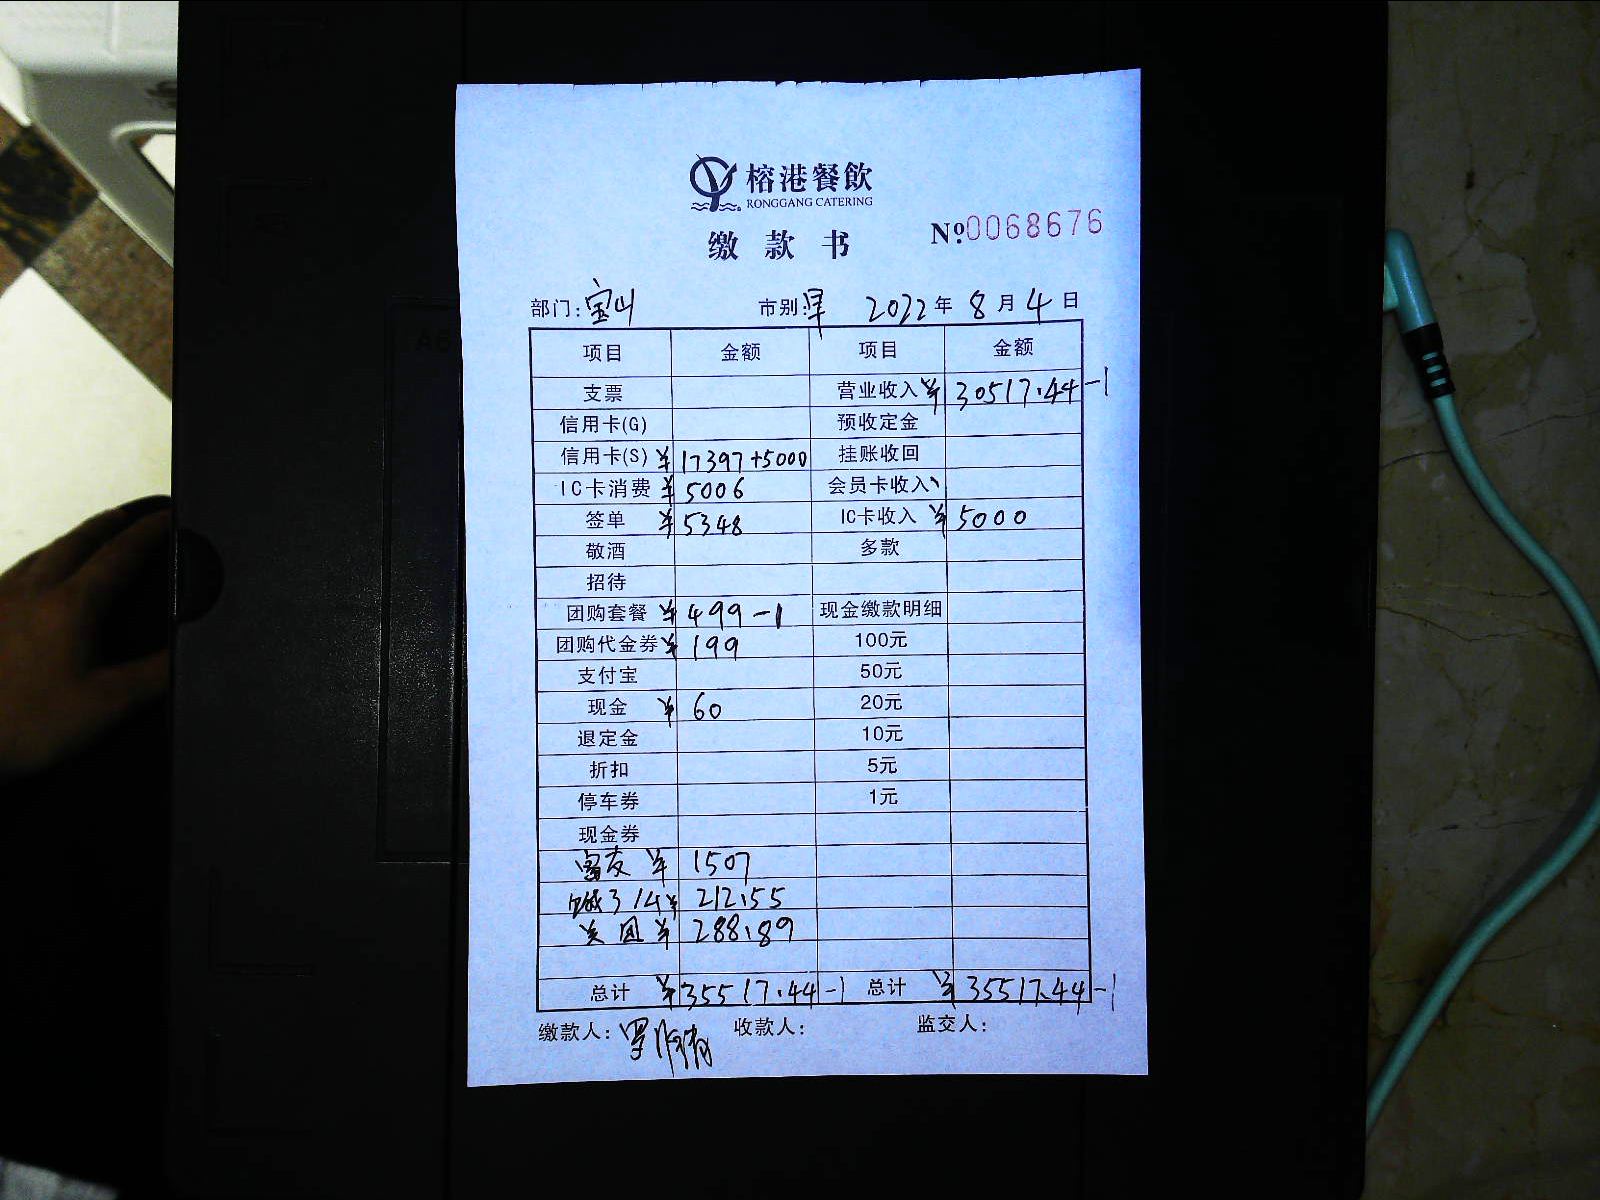 榕港餐飲
RONGGANG CATERING
缴款书
№0068676
部门：宝山 市别：早 2022年8月4日
项目 金额 项目 金额
支票 营业收入 ¥30517.44-1
信用卡(G) 预收定金
信用卡(S) ¥17397+5000 挂账收回
IC卡消费 ¥5006 会员卡收入
签单 ¥5348 IC卡收入 ¥5000
敬酒 多款
招待
团购套餐 ¥499-1 现金缴款明细
团购代金券 ¥199 100元
支付宝 50元
现金 ¥60 20元
退定金 10元
折扣 5元
停车券 1元
现金券
富友 ¥1507
饿3 14 ¥212.55
美团 ¥288.89
总计 ¥35517.44-1 总计 ¥35517.44-1
缴款人： 收款人： 监交人：